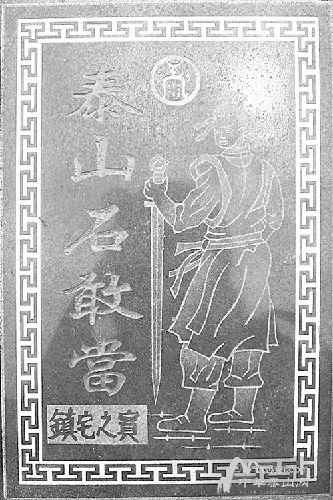 泰山石敢當
鎮宅之寶